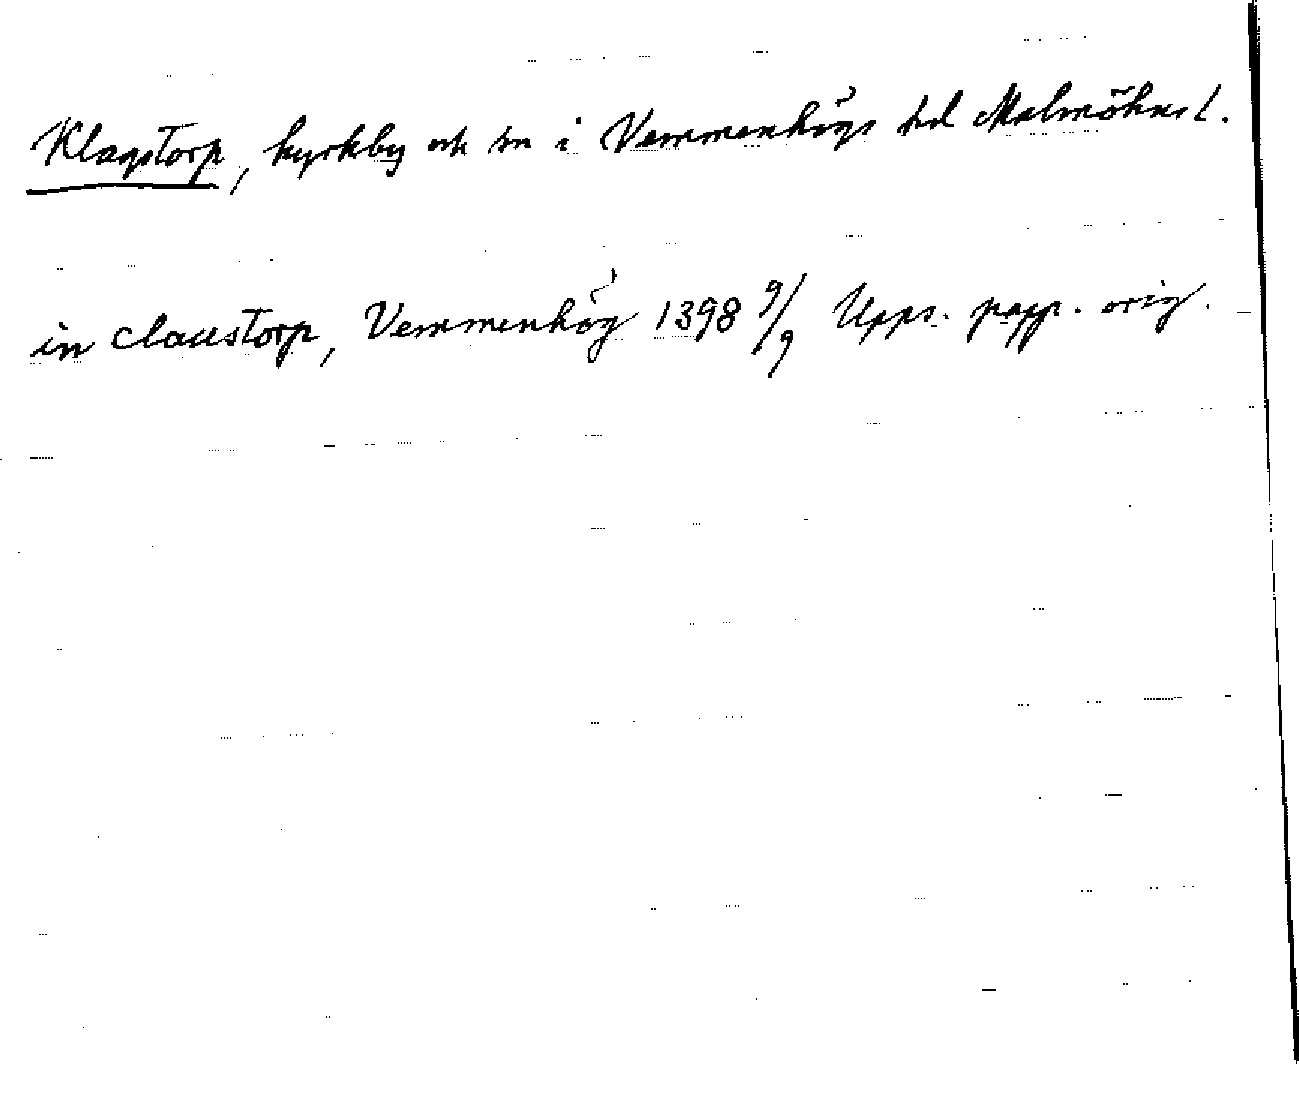 Klagstorp, kyrkby och sn i Vemmenhögs hd Malmöhus l.
in claustorp, Vemmenhög 1398 9/9 Upps. papp. orig.